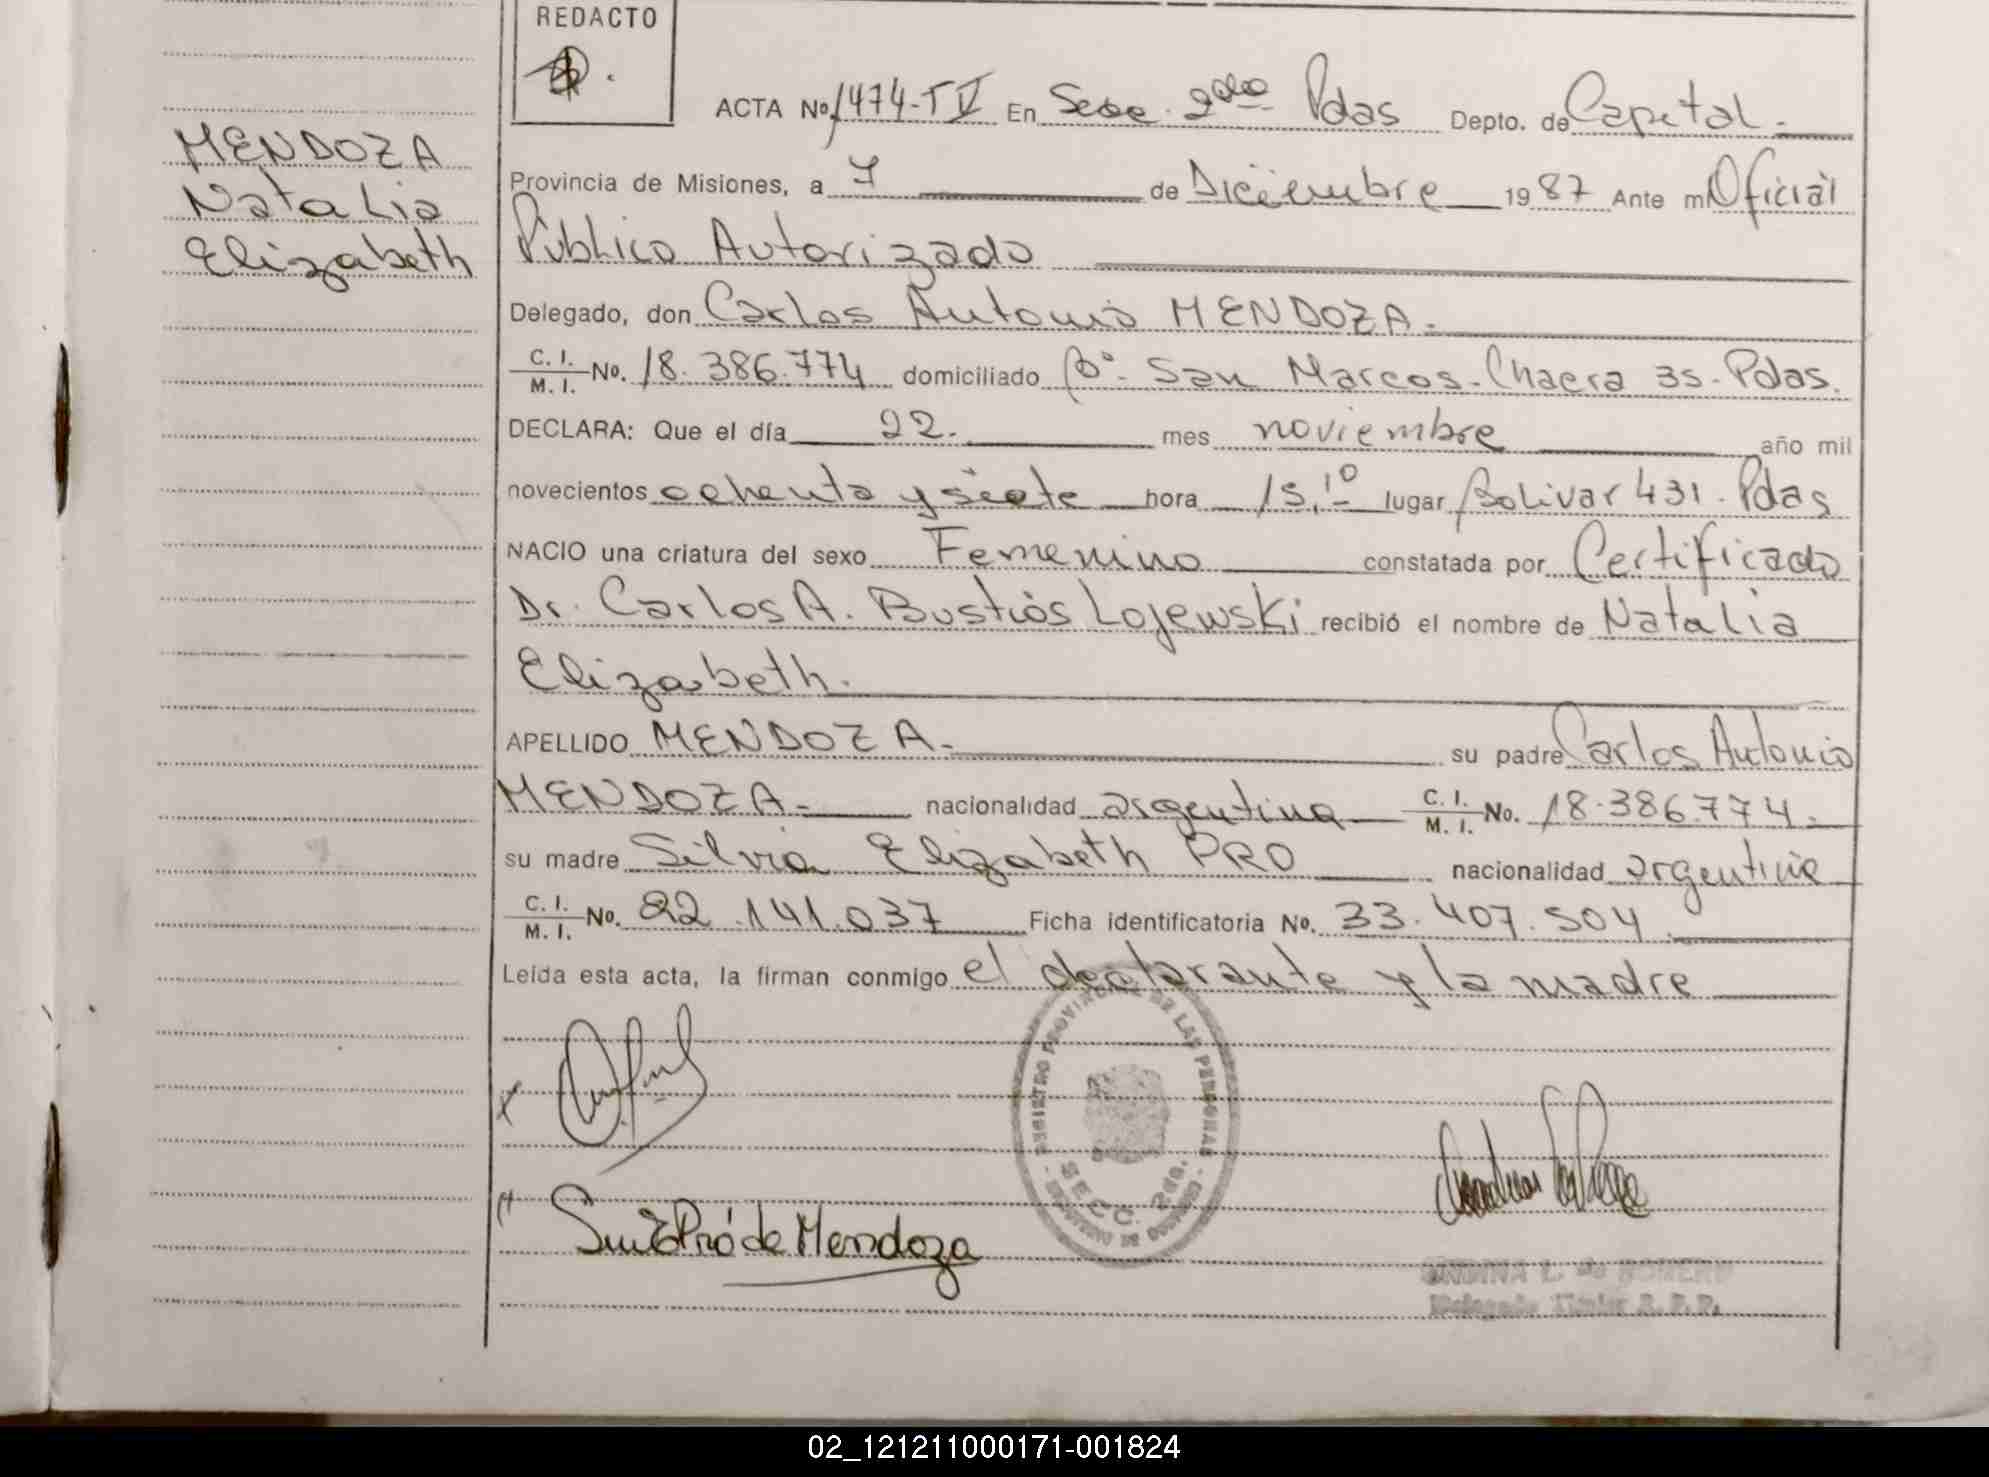 REDACTO
MENDOZA
Natalia
Elizabeth
ACTA No. 1474-T V En Secc. 2da Pdas Depto. de Capital.
Provincia de Misiones, a 7 de Diciembre 1987 Ante mi Oficial
Público Autorizado
Delegado, don Carlos Antonio MENDOZA.
C. I. / M. I. No. 18.386.774 domiciliado Bº. San Marcos-Chacra 35-Pdas.
DECLARA: Que el día 22. mes noviembre año mil
novecientos ochenta y siete hora 15,10 lugar Bolivar 431. Pdas
NACIO una criatura del sexo Femenino constatada por Certificado
Dr. Carlos A. Bustiós Lojewski recibió el nombre de Natalia
Elizabeth.
APELLIDO MENDOZA. su padre Carlos Antonio
MENDOZA. nacionalidad argentina C. I. / M. I. No. 18.386.774.
su madre Silvia Elizabeth PRO nacionalidad argentina
C. I. / M. I. No. 22.141.037 Ficha identificatoria No. 33.407.504
Leída esta acta, la firman conmigo el declarante y la madre
REGISTRO PROVINCIAL DE LAS PERSONAS
SECC. 2da.
Pró de Mendoza
L. de ROMERO
Delegada Titular R. P. P.
02_121211000171-001824